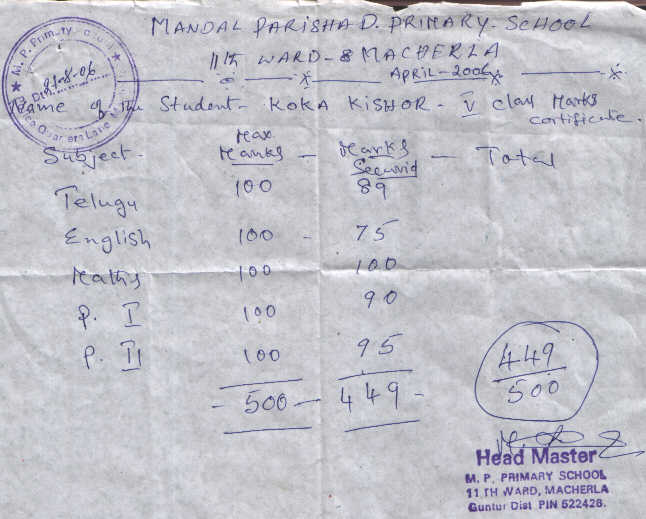 MANDAL PARISHAD. PRIMARY. SCHOOL
11th WARD - 8 MACHERLA
APRIL-2006
M. P. Primary
Dt. 21-8-06
Name of the Student - KOKA KISHOR - V class Marks certificate.
Subject - Max Marks - Marks Secured - Total
Telugu 100 89
English 100 - 75
Maths 100 100
P. I 100 90
P. II 100 95
- 500 - 449 -
449
500
Head Master
M. P. PRIMARY SCHOOL
11 TH WARD, MACHERLA
Guntur Dist PIN 522426.